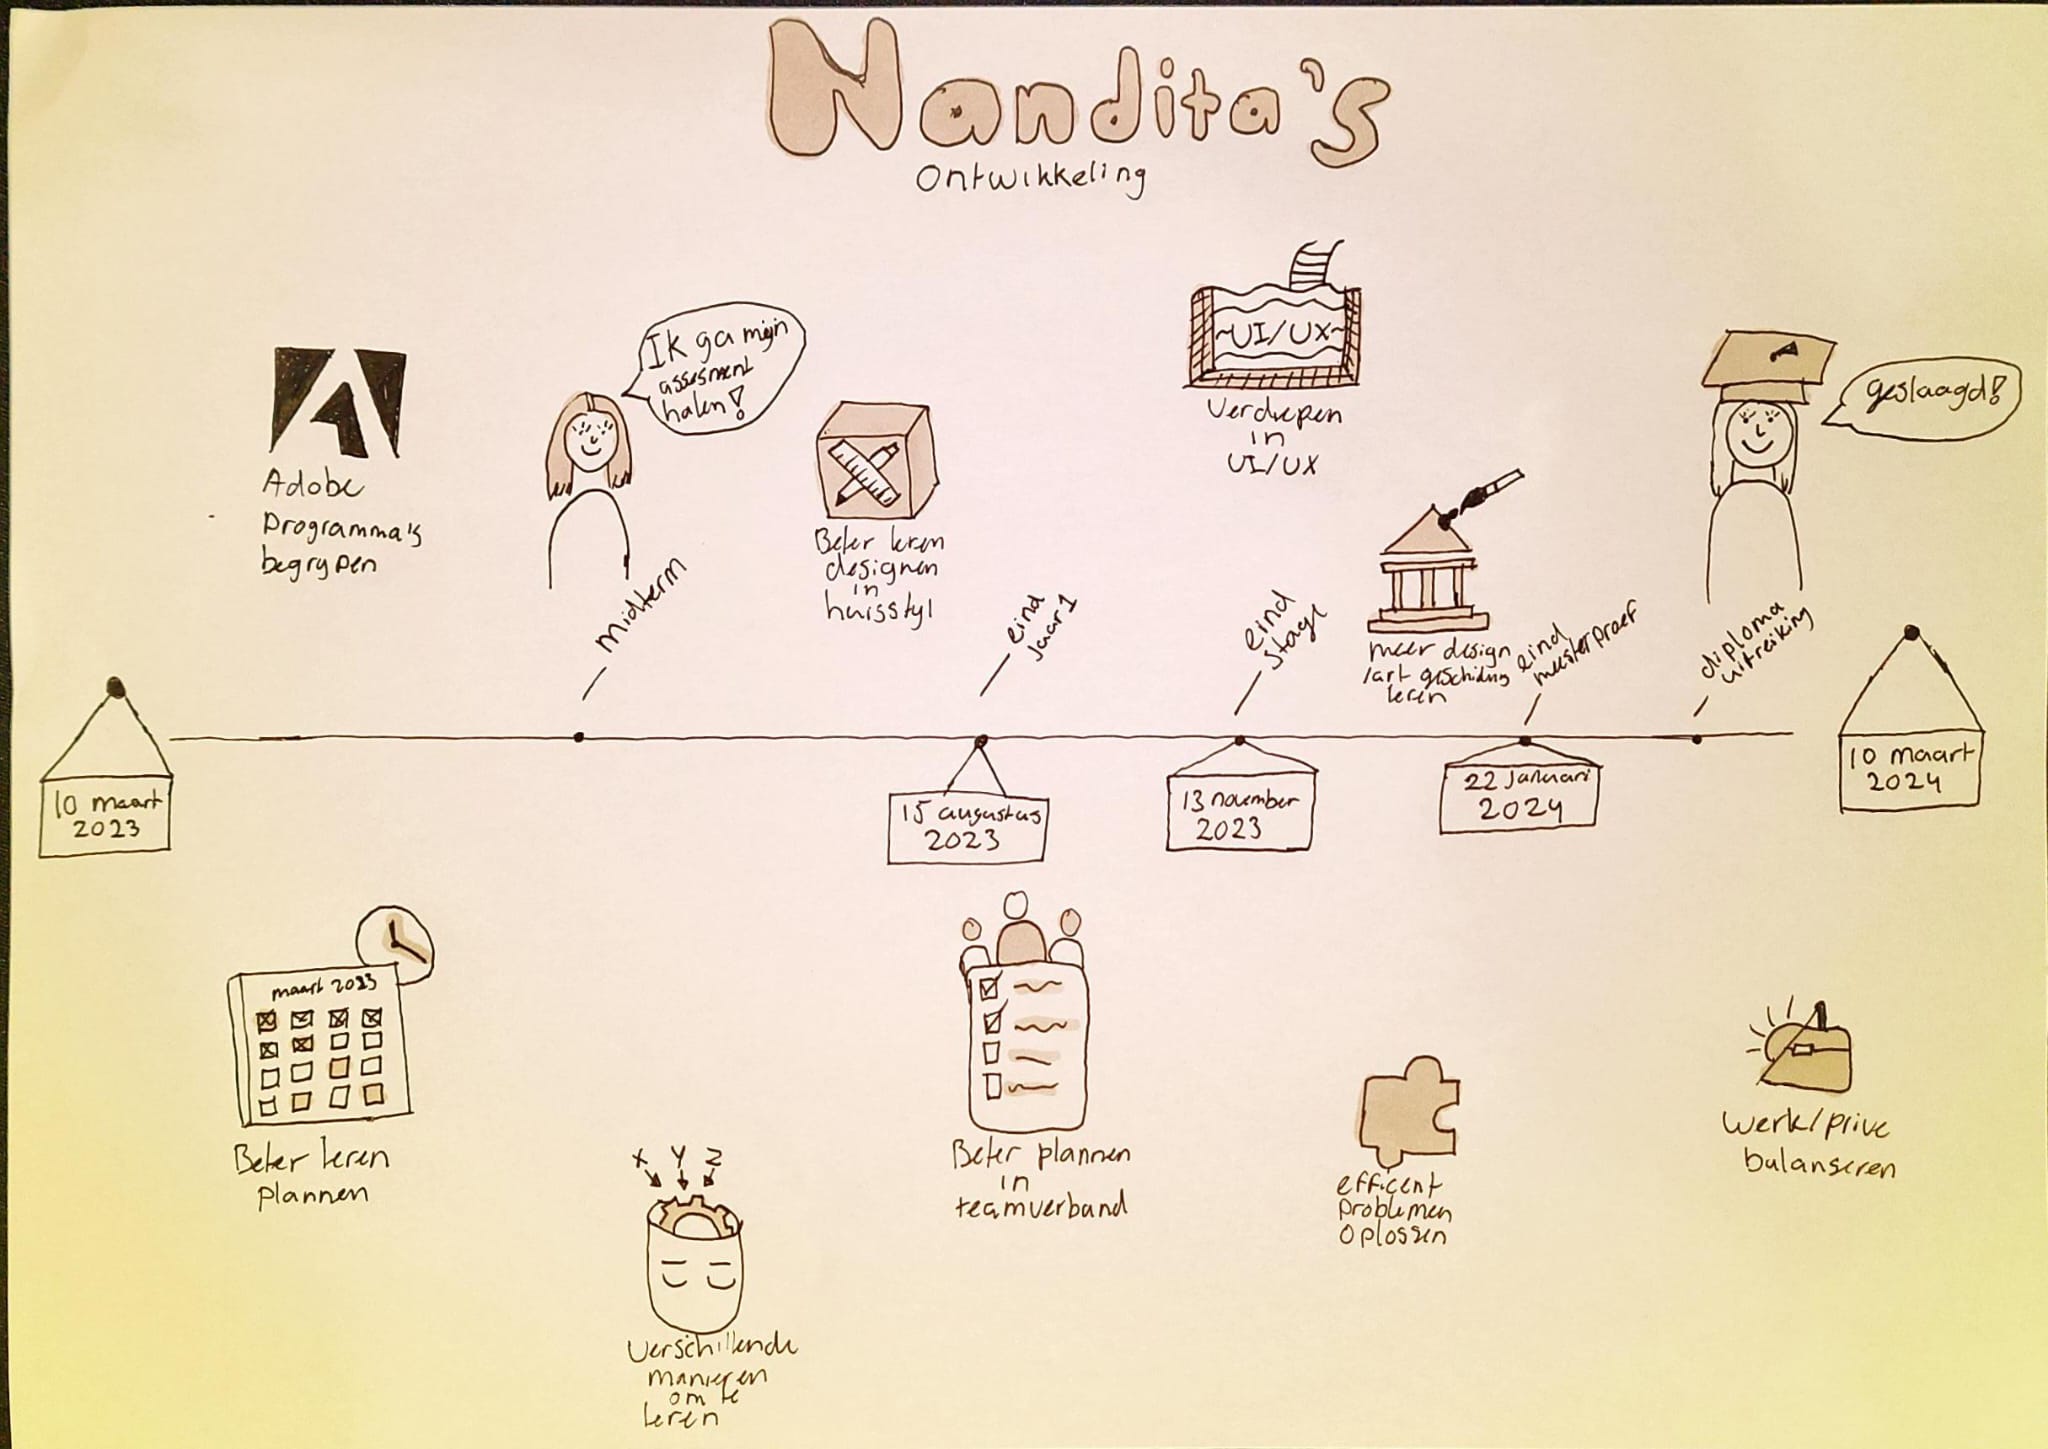 Nandita's
Ontwikkeling
Adobe
Programma's
begrypen
Ik ga mijn
assesment
halen!
midterm
Beter leren
designen
in
huisstyl
eind
jaar 1
~UI/UX~
Verdiepen
in
UI/UX
eind
stage
meer design
/art geschidnis
leren
eind
meesterproef
geslaagd!
diploma
uitreiking
10 maart
2023
15 augustus
2023
13 november
2023
22 januari
2024
10 maart
2024
maart 2023
Beter leren
plannen
X Y Z
Verschillende
manieren
om te
leren
Beter plannen
in
teamverband
efficent
problemen
oplossen
werk/prive
balanseren